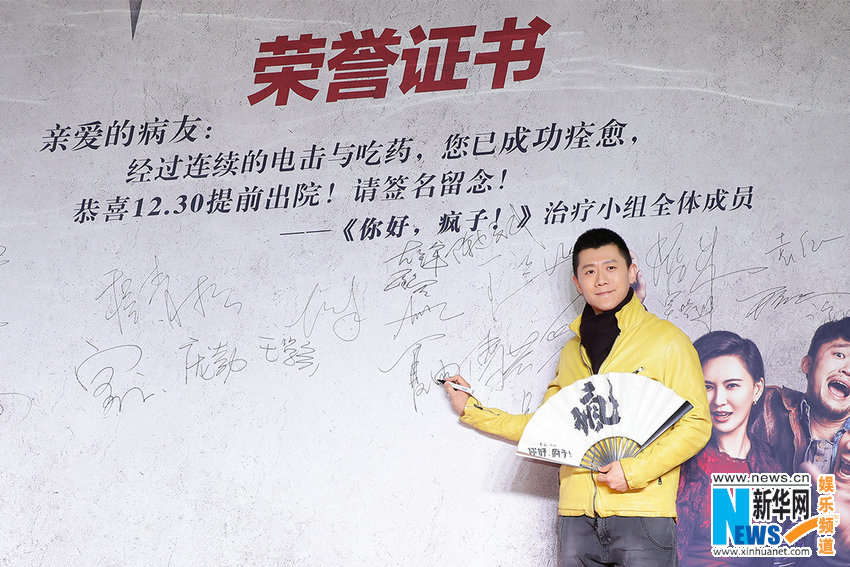 荣誉证书
亲爱的病友：
经过连续的电击与吃药，您已成功痊愈，
恭喜12.30提前出院！请签名留念！
——《你好，疯子！》治疗小组全体成员
疯
你好,疯子!
www.news.cn
NEWS 新华网
www.xinhuanet.com
娱乐频道